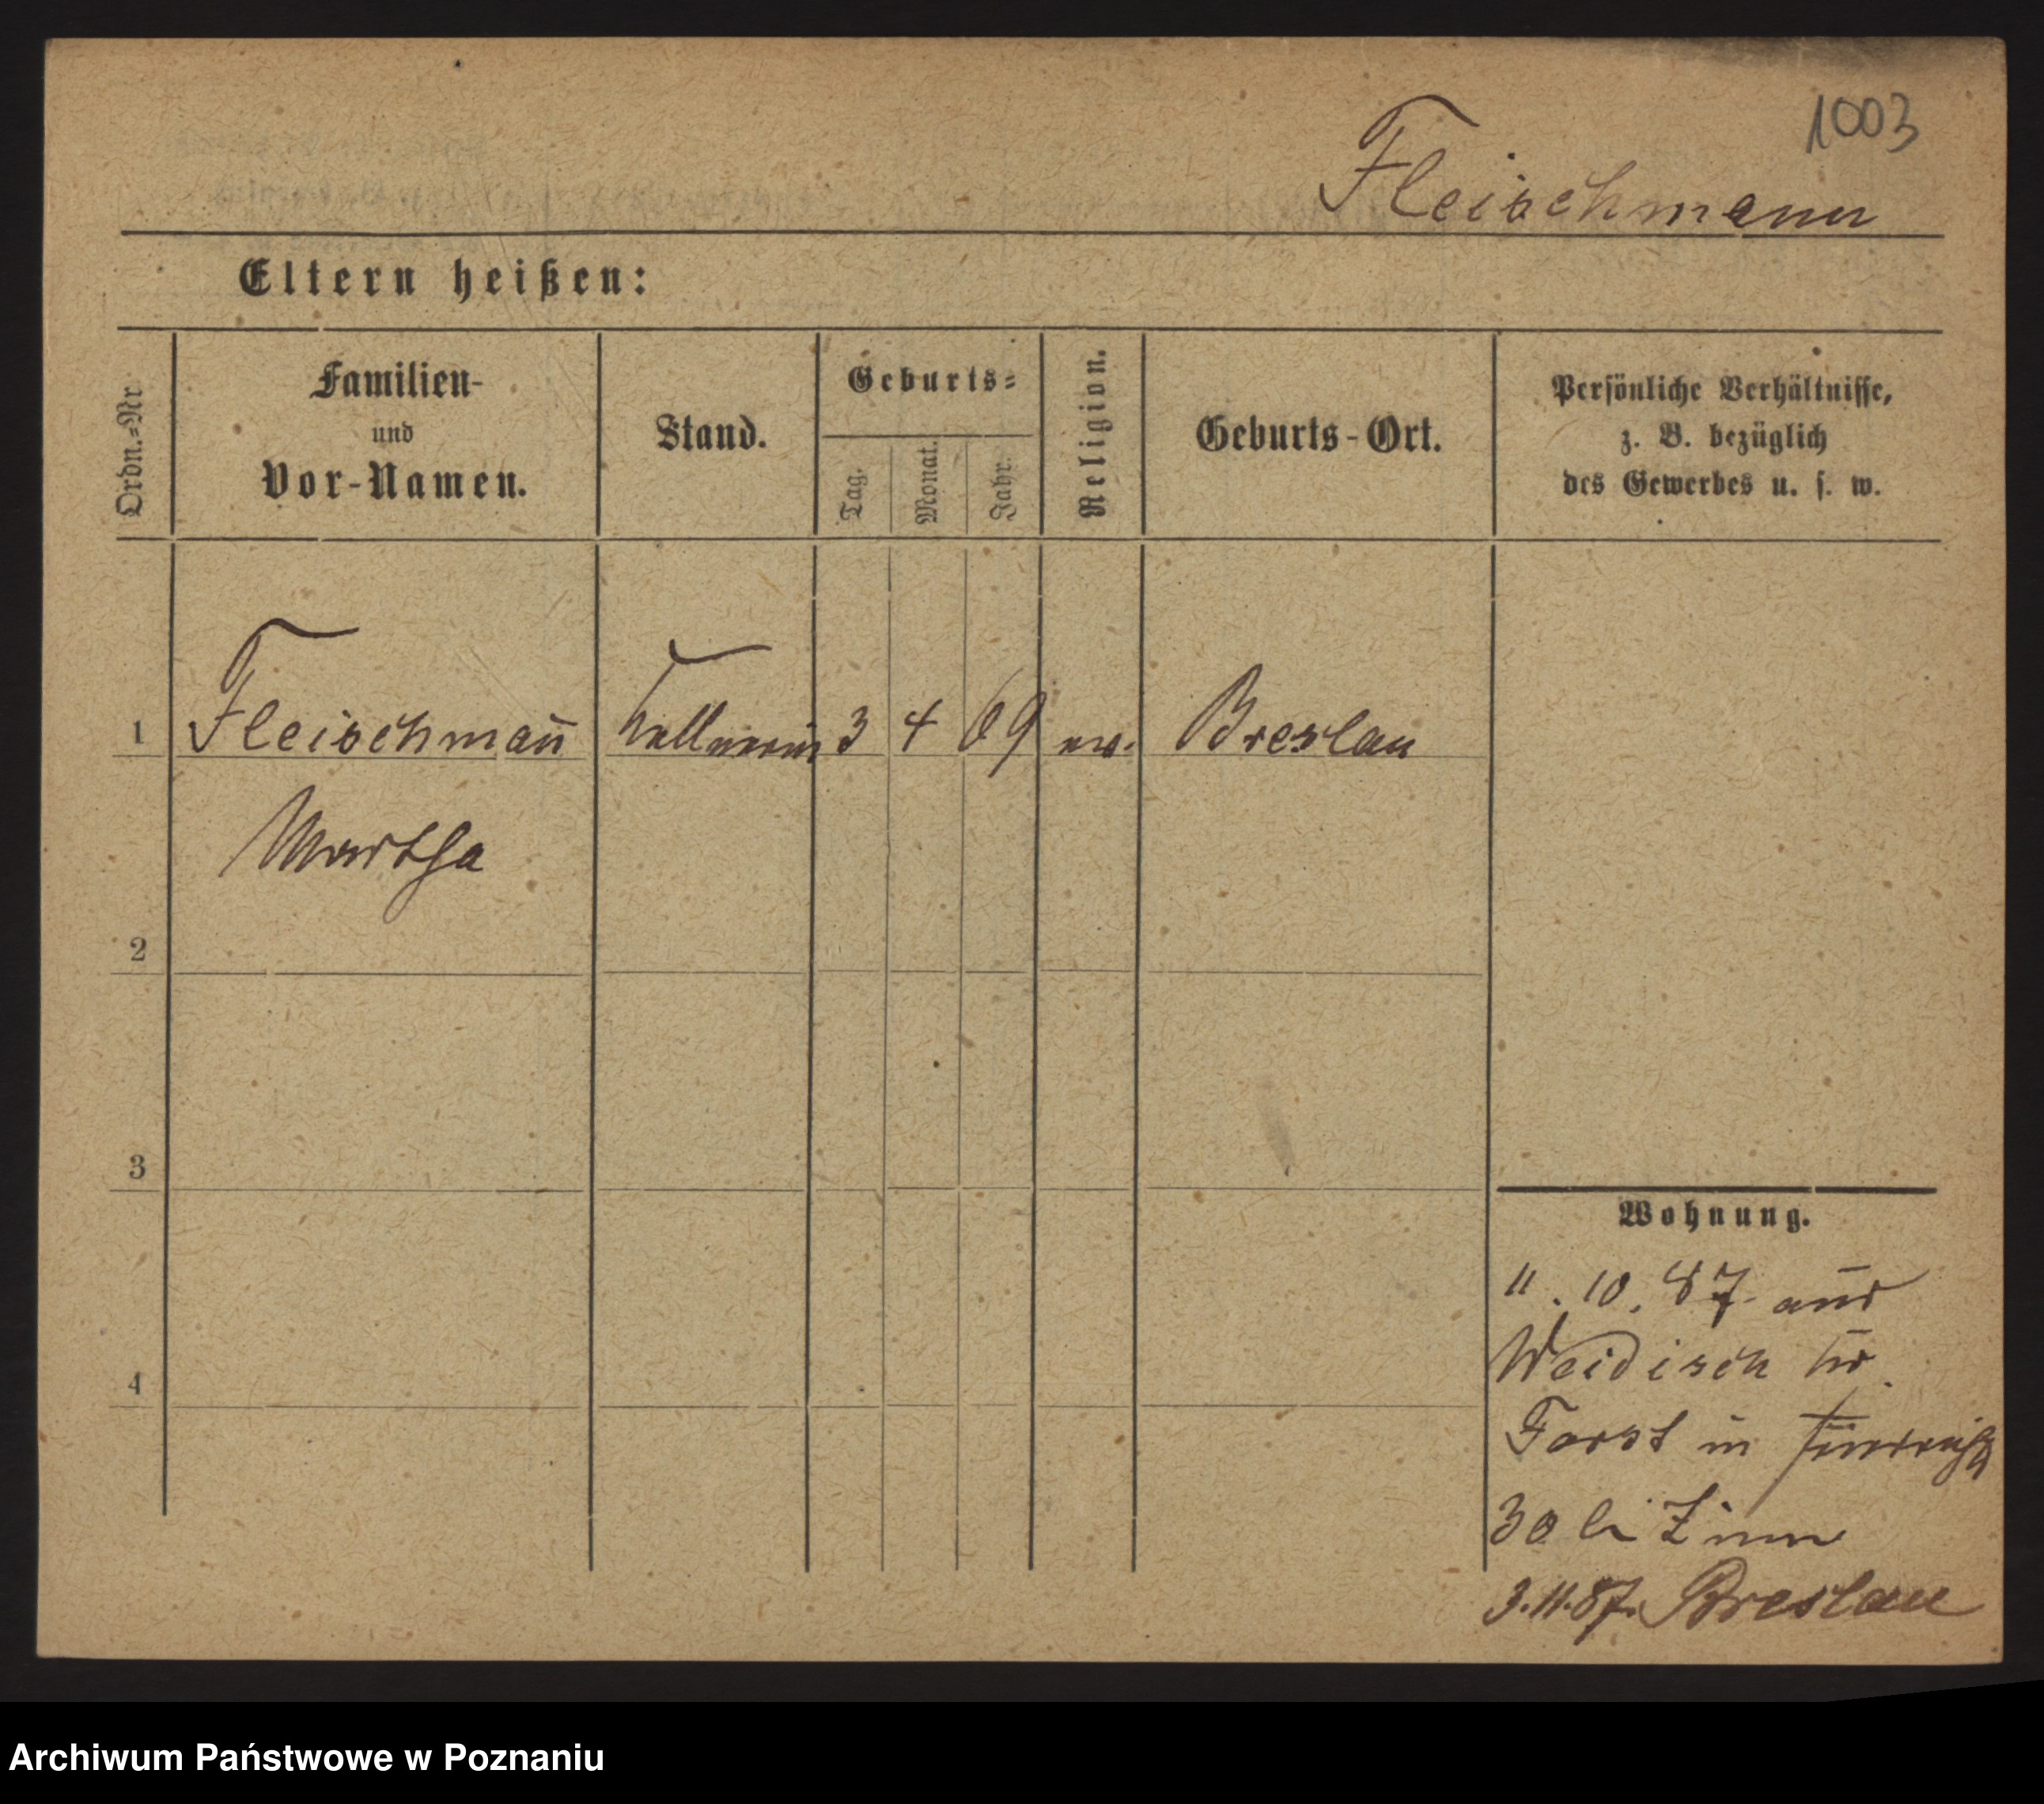 1003
Fleischmann
Eltern heißen:
Ordn.=Nr
Familien-
und
Vor-Namen.
Stand.
Geburts=
Tag.
Monat.
Jahr.
Religion.
Geburts-Ort.
Persönliche Verhältnisse,
z. B. bezüglich
des Gewerbes u. s. w.
1 Fleischman̄ Kellnerin 3 4 69 ev. Breslau
Martha
2
3
4
Wohnung.
11. 10. 87 aus
Forst in
30 Zimm
3.11.87. Breslau
Archiwum Państwowe w Poznaniu